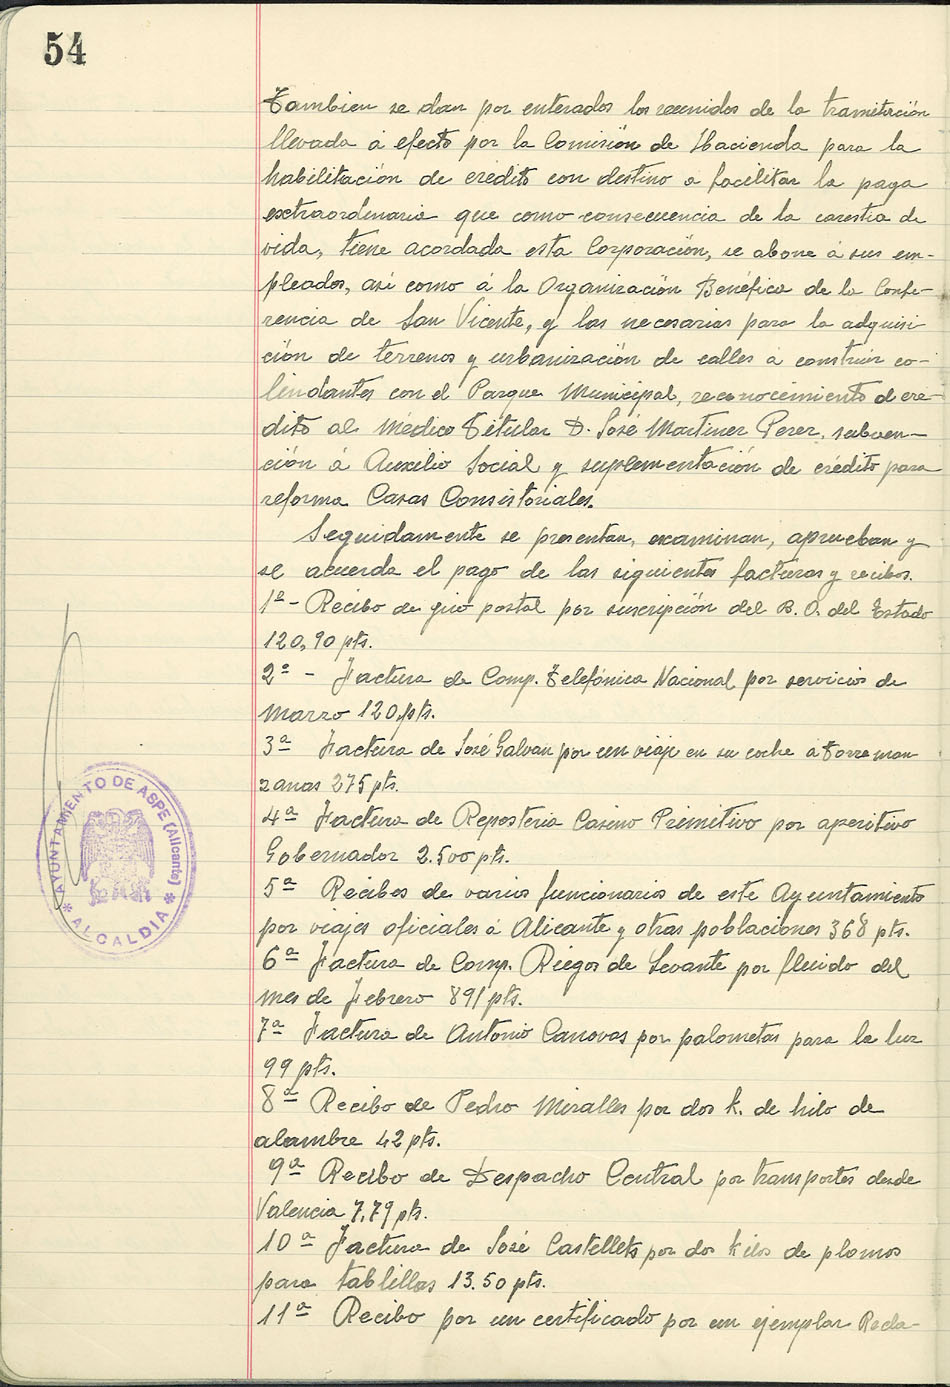 54
Tambien se dan por enterados los reunidos de la tramitación
llevada á efecto por la Comisión de Hacienda para la
habilitación de crédito con destino a facilitar la paga
extraordinaria que como consecuencia de la carestia de
vida, tiene acordada esta Corporación, se abone á sus em-
pleados, asi como á la Organización Benéfica de la Confe-
rencia de San Vicente, y las necesarias para la adquisi-
ción de terrenos y urbanización de calles a construir co-
lindantes con el Parque Municipal, reconocimiento de cré-
dito al Médico Titular D. José Martinez Perez, subven-
ción á Auxilio Social y suplementación de crédito para
reforma Casas Consistoriales.
Seguidamente se presentan, examinan, aprueban y
se acuerda el pago de las siguientes facturas y recibos.
1ª - Recibo de giro postal por suscripción del B. O. del Estado
120,90 pts.
2ª - Factura de Comp. Telefónica Nacional por servicios de
Marzo 120, pts.
3ª Factura de José Galvan por un viaje en su coche a Torreman
zanas 275 pts.
4ª Factura de Reposteria Casino Primitivo por aperitivo
Gobernador 2.500 pts.
5ª Recibos de varios funcionarios de este Ayuntamiento
por viajes oficiales á Alicante y otras poblaciones 368 pts.
6ª Factura de Comp. Riegos de Levante por fluido del
mes de Febrero 891 pts.
7ª Factura de Antonio Canovas por palometas para la luz
99 pts.
8ª Recibo de Pedro Miralles por dos k. de hilo de
alambre 42 pts.
9ª Recibo de Despacho Central por transportes desde
Valencia 7,79 pts.
10ª Factura de José Castellets por dos kilos de plomos
para tablillas 13.50 pts.
11ª Recibo por un certificado por un ejemplar Recla-
AYUNTAMIENTO DE ASPE (Alicante)
* ALCALDIA *